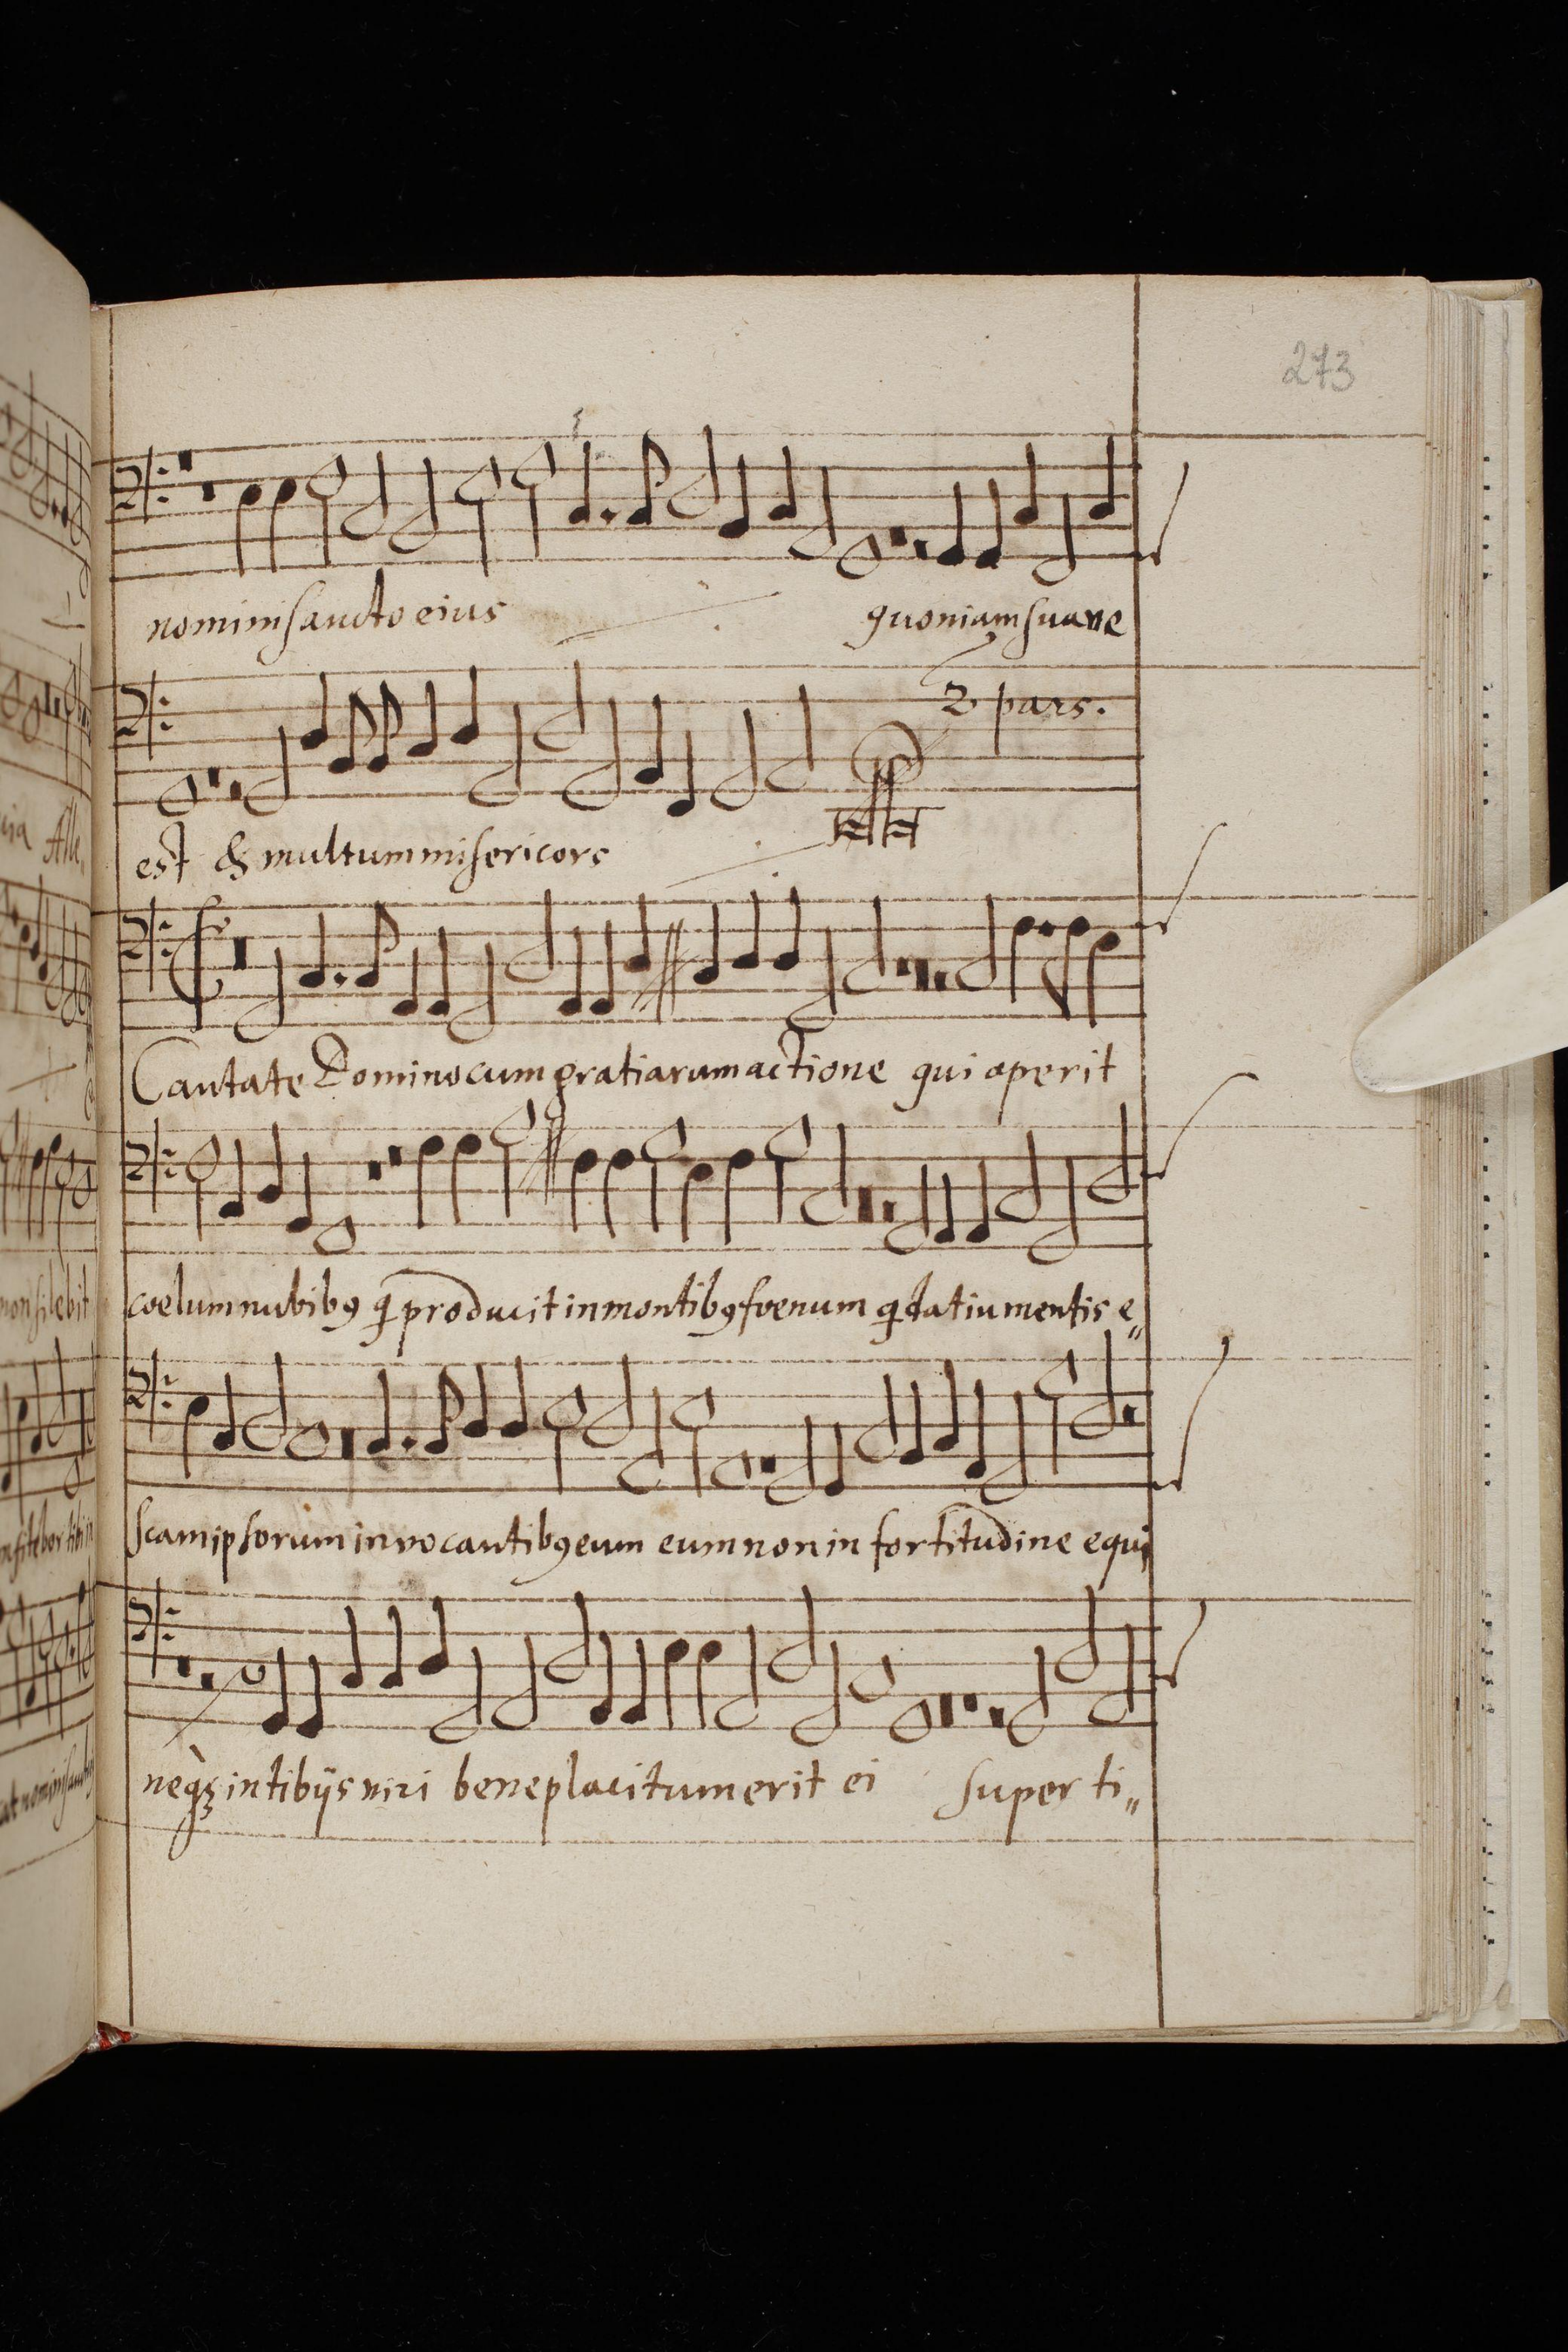 273
nomini sancto eius quoniam suave
2 pars.
est & multum misericors
Cantate Domino cum gratiarum actione qui operit
coelum nubibꝯ q producit in montibꝯ foenum q dat iumentis e„
scam ipsorum invocantibꝯ eum eum non in fortitudine equi
neqꝫ in tibijs viri beneplacitum erit ei super ti„
non silebit